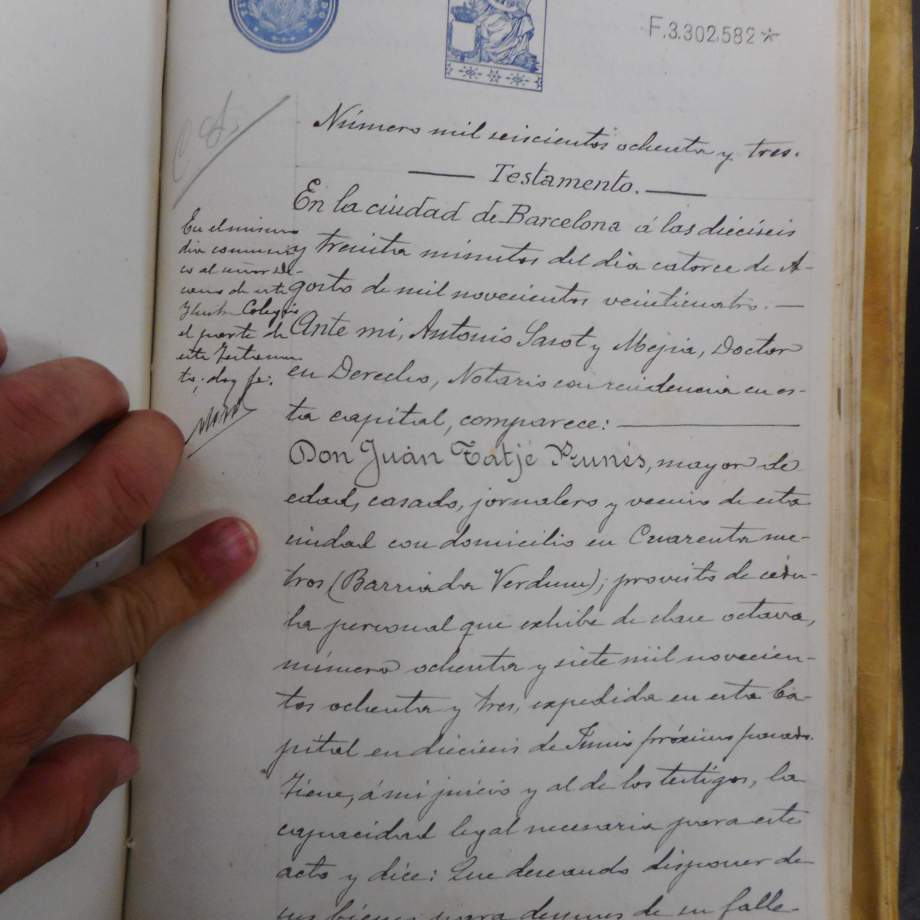 F.3.302.582 *
Número mil seiscientos ochenta y tres.
Testamento.
En la ciudad de Barcelona á las dieciseis
y treinta minutos del dia catorce de A-
gosto de mil novecientos veinticuatro.—
Ante mi, Antonio Sasot y Mejia, Doctor
en Derecho, Notario con residencia en es-
ta capital, comparece:
Don Juán Tatjé Prunés, mayor de
edad, casado, jornalero y vecino de esta
ciudad con domicilio en Cuarenta me-
tros (Barriada Verdum); provisto de cédu-
la personal que exhibe de clase octava,
número ochenta y siete mil novecien-
tos ochenta y tres, expedida en esta Ca-
pital en dieciseis de Junio próximo pasado.
Tiene, á mi juicio y al de los testigos, la
capacidad legal necesaria para este
acto y dice: Que deseando disponer de
sus bienes para despues de su falle-
En el mismo
dia comuni
co al señor De-
cano de este
Ilustre Colegio
el parte de
este Testamen
to; doy fe.